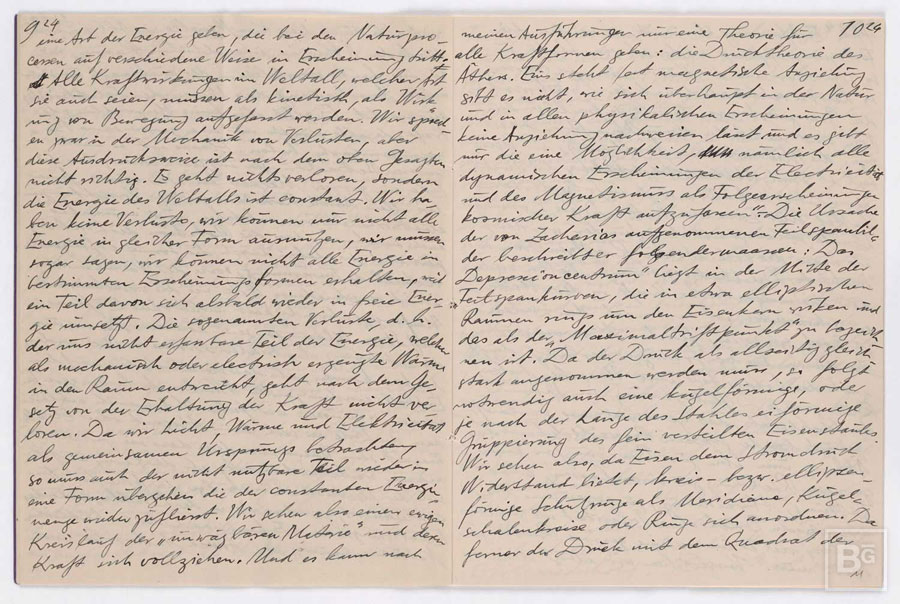 9 24
eine Art der Energie geben, die bei den Naturpro-
cessen auf verschiedene Weise in Erscheinung tritt.
Alle Kraftwirkungen im Weltall, welcher Art
sie auch seien, müssen als kinetisch, als Wirk
ung von Bewegung aufgefasst werden. Wir sprech
en zwar in der Mechanik von Verlusten, aber
diese Ausdrucksweise ist nach dem oben Gesagten
nicht richtig. Es geht nichts verloren, sondern
die Energie des Weltalls ist constant. Wir ha-
ben keine Verluste, wir können nur nicht alle
Energie in gleicher Form ausnützen, wir müssen
sogar sagen, wir können nicht alle Energie in
bestimmten Erscheinungsformen erhalten, weil
ein Teil davon sich alsbald wieder in freie Ener-
gie umsetzt. Die sogenannten Verluste, d. h.
der uns nicht erfassbare Teil der Energie, welcher
als mechanisch oder electrisch erzeugte Wärme
in den Raum entweicht, geht nach dem Ge
setz von der Erhaltung der Kraft nicht ver
loren. Da wir Licht, Wärme und Elektricität
als gemeinsamen Ursprungs betrachten,
so muss auch der nicht nutzbare Teil wieder in
eine Form übergehen die der constanten Energie
menge wieder zufliesst. Wir sehen also einen ewigen
Kreislauf der "unwägbaren Materie" und deren
Kraft sich vollziehen. Und es kann nach
10 24
meinen Ausführungen nur eine Theorie für
alle Kraftformen geben: die Drucktheorie des
Äthers. Eins steht fest magnetische Anziehung
gibt es nicht, wie sich überhaupt in der Natur
und in allen physikalischen Erscheinungen
keine Anziehung nachweisen lässt und es gibt
nur die eine Möglichkeit, nämlich alle
dynamischen Erscheinungen der Electricität
und des Magnetismus als Folgeerscheinungen
kosmischer Kraft aufzufassen. Die Ursache
der von Zacharias aufgenommenen Feilspanbil-
der beschreibt er folgendermaassen: Das
"Depressioncentrum" liegt in der Mitte der
Feilspankurven, die in etwa elliptischen
Räumen rings um den Eisenkern wirken und
das als der "Maximaltriftpunkt" zu bezeich-
nen ist. Da der Druck als allseitig gleich
stark angenommen werden muss, so folgt
notwendig auch eine kugelförmige, oder
je nach der Länge des Stahles eiförmige
Gruppierung des fein verteilten Eisenstaubes.
Wir sehen also, da Eisen dem Stromdruck
Widerstand bietet, kreis- bezw. ellipsen-
förmige Schutzringe als Meridiane, Kugel-
schalenkreise oder Ringe sich anordnen. Da
ferner der Druck mit dem Quadrat der
BG